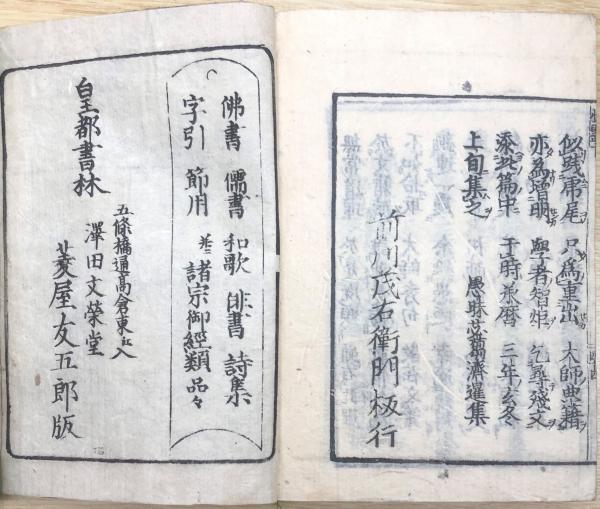 似残庸尾只為重出大師典籍
亦為増明學者智炬乞尋残文
添此篇中于時承暦三年玄冬
上旬集之愚昧苾蒭濟暹集
前川茂右衛門板行
佛書 儒書 和歌 俳書 詩集
字引 節用 並ニ 諸宗御經類品々
皇都書林
五條橋通高倉東ヘ入
澤田文榮堂
菱屋友五郎版